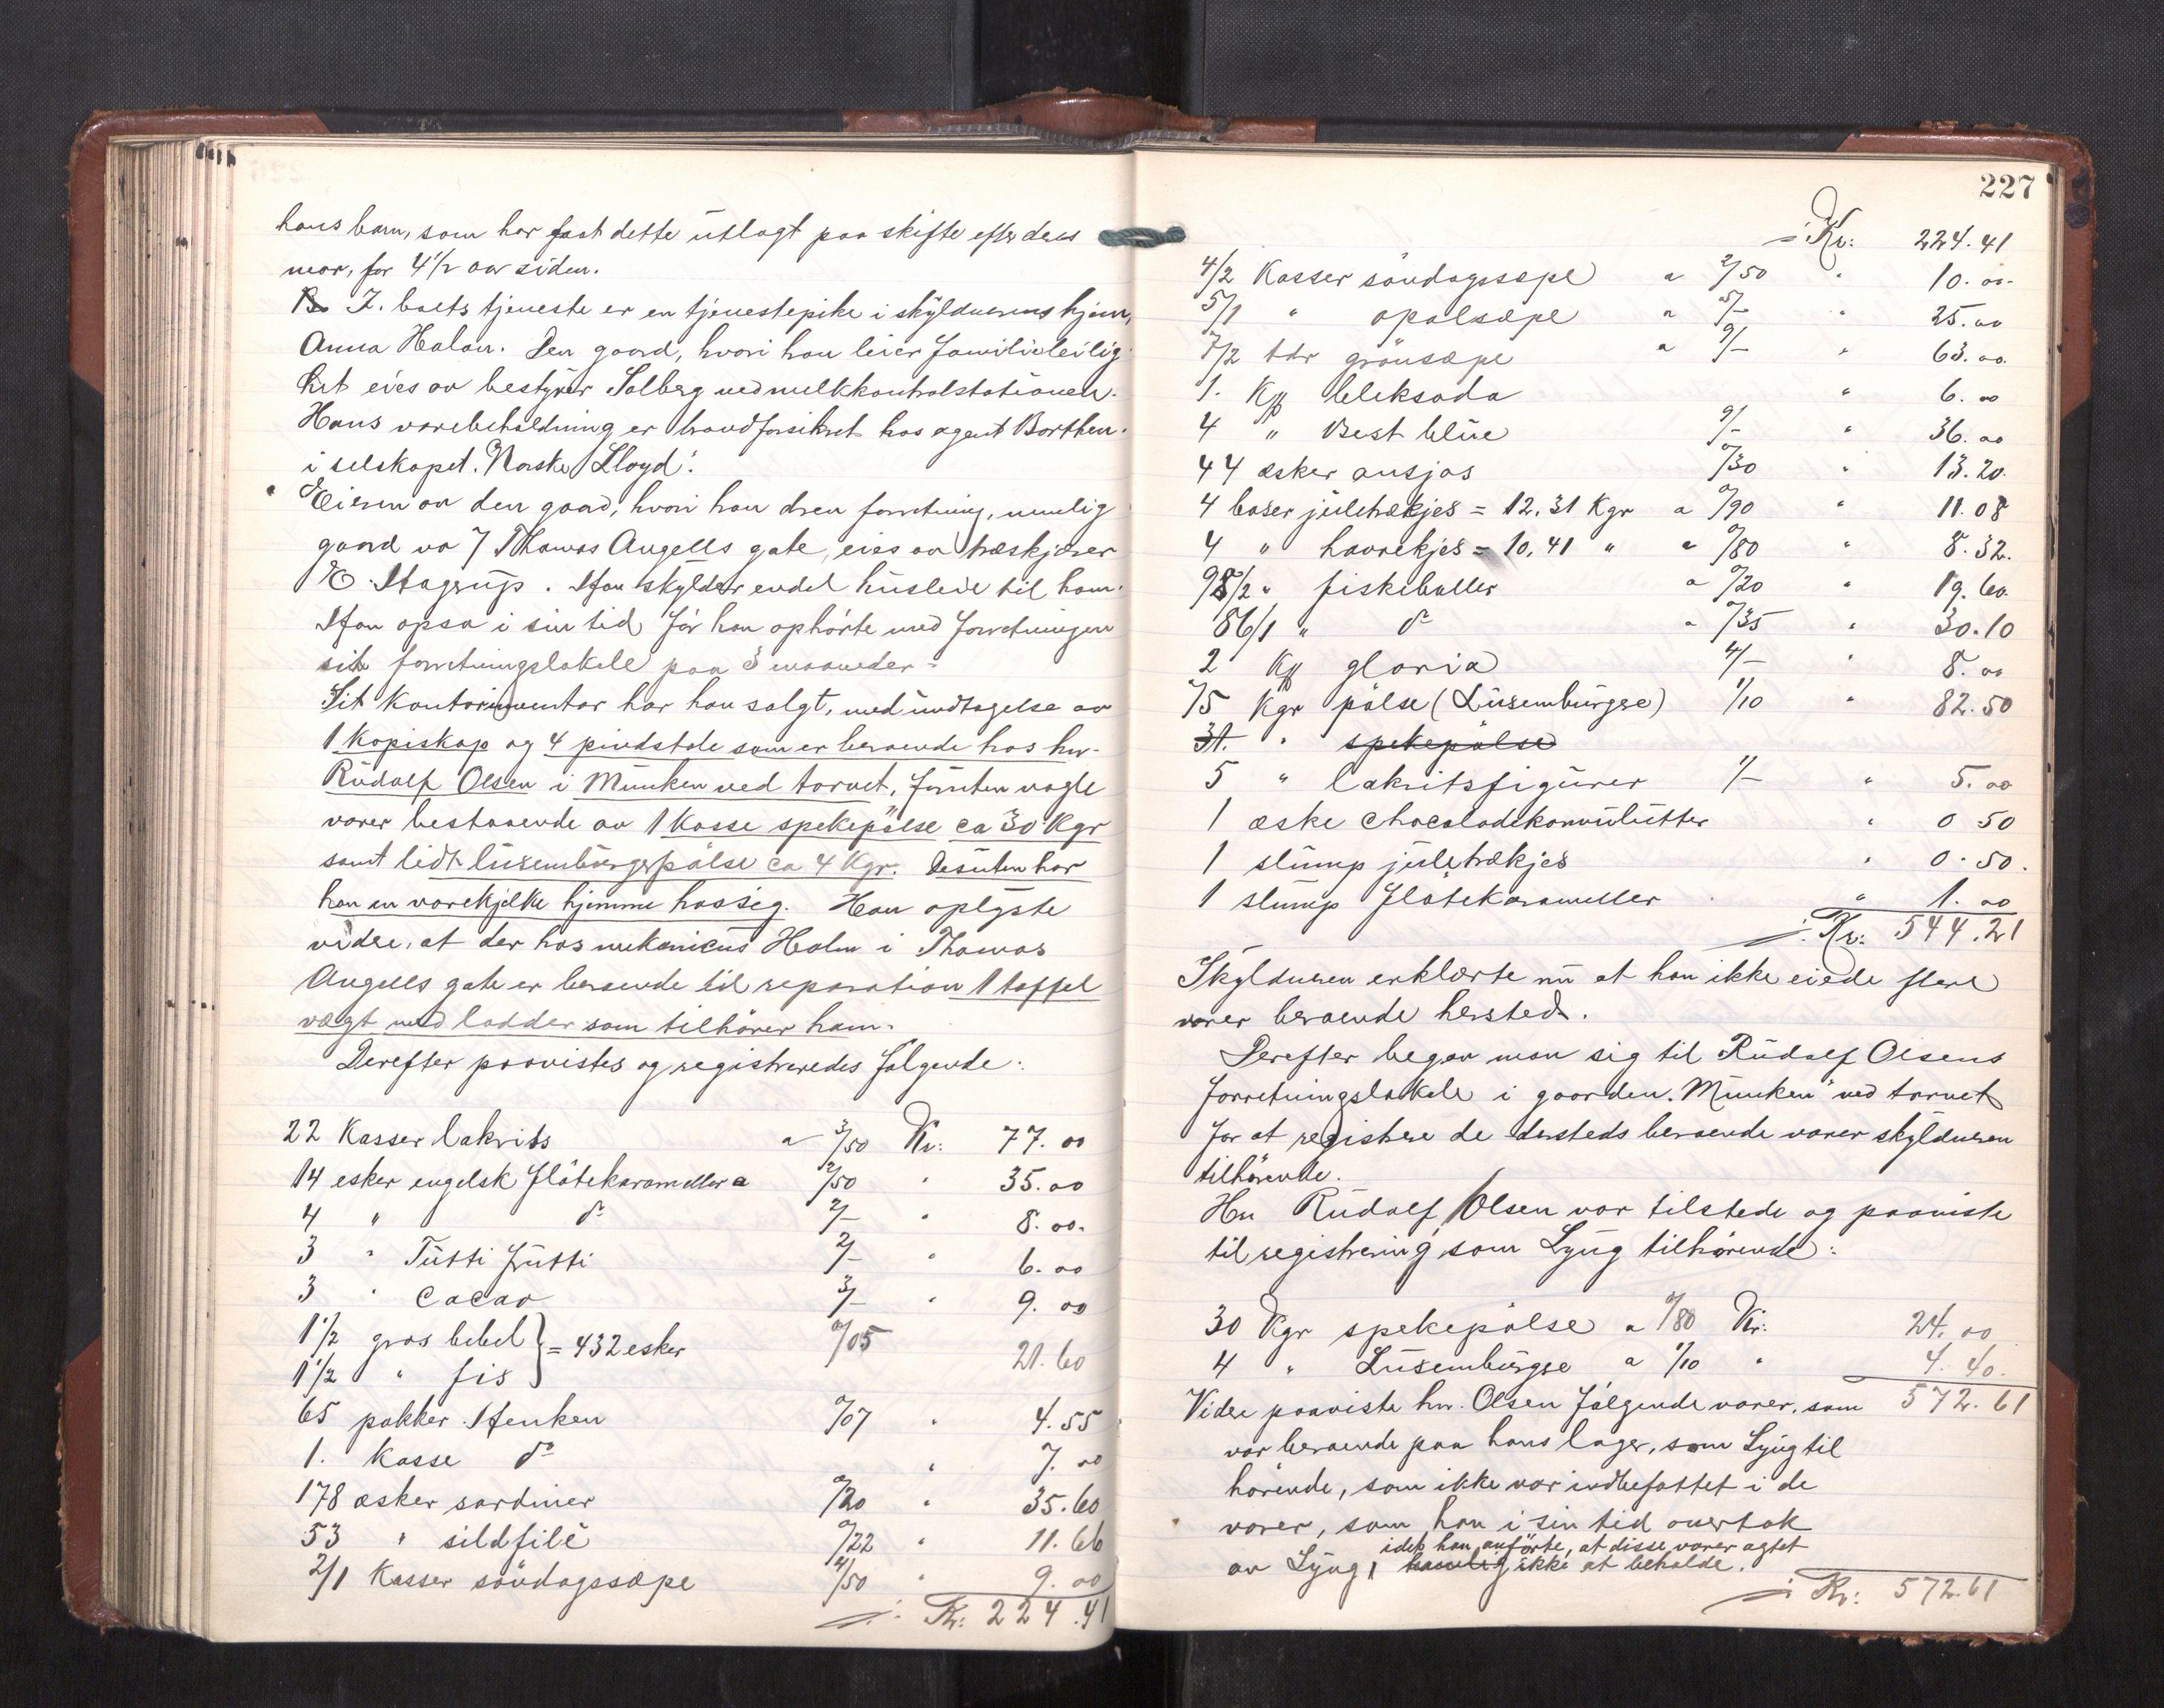 hans barn, som har faat dette utlagt paa skifte efter deres
mor, for 4 1/2 aar siden.
I. boets tjeneste er en tjenestepike i skyldnerens hjem,
Anna Halan. Den gaard, hvori han leier familieleilig
het eies av bestyrer Solberg ved melkkontrolstationen.
Hans varebeholdning er brandforsikret hos agent Borthen
i selskapet "Norske Lloyd".
Eieren av den gaard, hvori han drev forretning, nemlig
gaard no 7 Thomas Angells gate, eies av træskjærer
E. Stagrup. Han skylder endel husleie til ham.
Han opsa i sin tid før han ophørte med forretningen
sit forretningslokale paa 3 maaneder.
Sit kontorinventar har han solgt, med undtagelse av
1 kopiskap og 4 pindstole som er beroende hos hr.
Rudolf Olsen i Munken ved torvet, foruten nogle
varer bestaaende av 1 kasse spekepølse ca 30 Kgr
samt lidt luxemburgerpølse ca 4 Kgr. Desuten har
han en varekjelke hjemme hos sig. Han oplyste
videre, at der hos mekanicus Holm i Thomas
Angells gate er beroende til reparation 1 taffel
vegt med lodder som tilhører ham.
Derefter paavistes og registreredes følgende:
22 Kasser lakrits a 3/50 Kr: 77.00
14 esker engelsk fløtekarameller a 2/50 " 35.00
4 " do 2/- " 8.00
3 " Tutti frutti 2/- " 6.00
3 " Cacao 3/- " 9.00
1 1/2 gros bebel } = 432 esker 0/05 21.60
1 1/2 " fis
65 pakker Henken 0/07 " 4.55
1. kasse do " 7.00
178 æsker sardiner 0/20 " 35.60
53 " sildfilè 0/22 " 11.66
2/1 Kasser søndagssæpe 4/50 " 9.00
Kr: 224.41
227
Kr: 224.41
4/2 Kasser søndagssæpe a 2/50 " 10.00
5/1 " opalsæpe a 5/- " 25.00
7/2 tdr grønsæpe a 9/- " 63.00
1. Kp bleksoda " 6.00
4 " Best blue 9/- " 36.00
44 æsker ansjos 0/30 " 13.20
4 boser juletrækjes = 12,31 Kgr a 0/90 " 11.08
4 " havrekjes = 10,41 " a 0/80 " 8.32.
98/2 " fiskeboller a 0/20 " 19.60
86/1 " do " 0/35 " 30.10
2 Kp gloria 4/- " 8.00
75 Kgr pølse (Luxemburger) 1/10 " 82.50
31. " spekepølse
5 " lakritsfigurer 1/- " 5.00
1 æske chocoladekonvulutter " 0 50
1 slump juletrækjes " 0.50.
1 slump fløtekarameller " 1.00
Kr: 544.21
Skyldneren erklærte nu at han ikke eiede flere
varer beroende hersteds.
Derefter begav man sig til Rudolf Olsens
forretningslokale i gaarden "Munken" ved torvet
for at registrere de dersteds beroende varer skyldneren
tilhørende.
Hr. Rudolf Olsen var tilstede og paaviste
til registrering som Lyng tilhørende:
30 Kgr spekepølse a 0/80 Kr: 24.00
4 " Luxemburger a 1/10 " 4.40.
Videre paaviste hr. Olsen følgende varer, som 572.61
var beroende paa hans lager, som Lyng til
hørende, som ikke var indbefattet i de
varer, som han i sin tid overtok
idet han anførte, at disse varer agtet
av Lyng, ikke at beholde.
Kr: 572.61